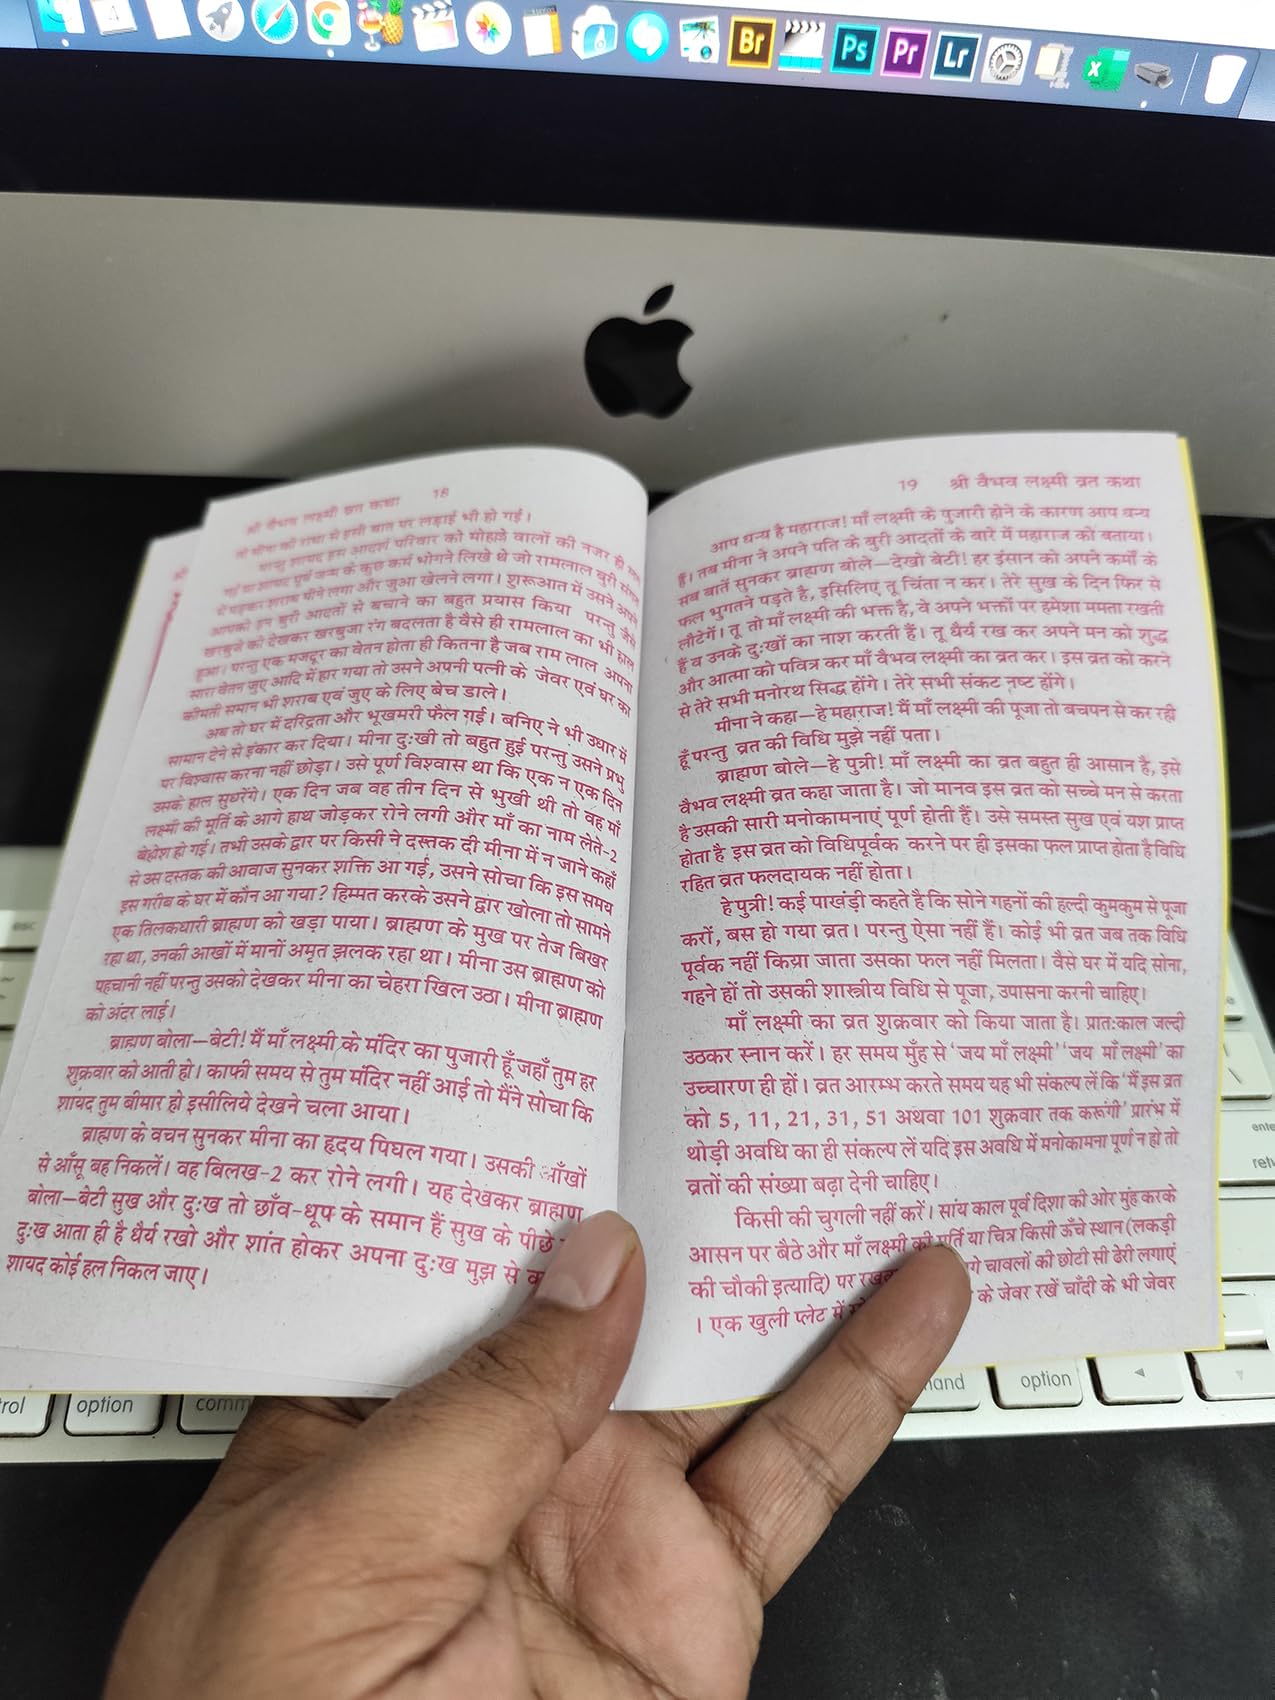 Br
Ps
Pr
Lr
श्री वैभव लक्ष्मी व्रत कथा 18
की राधा से इसी बात पर लड़ाई भी हो गई।
शायद इस आदर्श परिवार को मोहल्ले वालों की नजर ही
गई या शायद पूर्व जन्म के कुछ कर्म भोगने लिखे थे जो रामलाल बुरी संगत
में पड़कर शराब पीने लगा और जुआ खेलने लगा। शुरूआत में उसने अपने
आपको इन बुरी आदतों से बचाने का बहुत प्रयास किया परन्तु जैसे
खरबुजे को देखकर खरबुजा रंग बदलता है वैसे ही रामलाल का भी हाल
हुआ। परन्तु एक मजदूर का वेतन होता ही कितना है जब राम लाल अपना
सारा वेतन जुए आदि में हार गया तो उसने अपनी पत्नी के जेवर एवं घर का
कीमती समान भी शराब एवं जुए के लिए बेच डाले।
अब तो घर में दरिद्रता और भूखमरी फैल गई। बनिए ने भी उधार में
सामान देने से इंकार कर दिया। मीना दुःखी तो बहुत हुई परन्तु उसने प्रभु
पर विश्वास करना नहीं छोड़ा। उसे पूर्ण विश्वास था कि एक न एक दिन
उसके हाल सुधरेंगे। एक दिन जब वह तीन दिन से भुखी थी तो वह माँ
लक्ष्मी की मूर्ति के आगे हाथ जोड़कर रोने लगी और माँ का नाम लेते-2
बेहोश हो गई। तभी उसके द्वार पर किसी ने दस्तक दी मीना में न जाने कहाँ
से उस दस्तक की आवाज सुनकर शक्ति आ गई, उसने सोचा कि इस समय
इस गरीब के घर में कौन आ गया? हिम्मत करके उसने द्वार खोला तो सामने
एक तिलकधारी ब्राह्मण को खड़ा पाया। ब्राह्मण के मुख पर तेज बिखर
रहा था, उनकी आखों में मानों अमृत झलक रहा था। मीना उस ब्राह्मण को
पहचानी नहीं परन्तु उसको देखकर मीना का चेहरा खिल उठा। मीना ब्राह्मण
को अंदर लाई।
ब्राह्मण बोला—बेटी! मैं माँ लक्ष्मी के मंदिर का पुजारी हूँ जहाँ तुम हर
शुक्रवार को आती हो। काफी समय से तुम मंदिर नहीं आई तो मैंने सोचा कि
शायद तुम बीमार हो इसीलिये देखने चला आया।
ब्राह्मण के वचन सुनकर मीना का हृदय पिघल गया। उसकी आँखों
से आँसू बह निकलें। वह बिलख-2 कर रोने लगी। यह देखकर ब्राह्मण
बोला—बेटी सुख और दुःख तो छाँव-धूप के समान हैं सुख के पीछे
दुःख आता ही है धैर्य रखो और शांत होकर अपना दुःख मुझ से
शायद कोई हल निकल जाए।
19 श्री वैभव लक्ष्मी व्रत कथा
आप धन्य है महाराज! माँ लक्ष्मी के पुजारी होने के कारण आप धन्य
हैं। तब मीना ने अपने पति के बुरी आदतों के बारे में महाराज को बताया।
सब बातें सुनकर ब्राह्मण बोले—देखो बेटी! हर इंसान को अपने कर्मों के
फल भुगतने पड़ते है, इसिलिए तू चिंता न कर। तेरे सुख के दिन फिर से
लौटेगें। तू तो माँ लक्ष्मी की भक्त है, वे अपने भक्तों पर हमेशा ममता रखती
हैं व उनके दुःखों का नाश करती हैं। तू धैर्य रख कर अपने मन को शुद्ध
और आत्मा को पवित्र कर माँ वैभव लक्ष्मी का व्रत कर। इस व्रत को करने
से तेरे सभी मनोरथ सिद्ध होंगे। तेरे सभी संकट नष्ट होंगे।
मीना ने कहा—हे महाराज! मैं माँ लक्ष्मी की पूजा तो बचपन से कर रही
हूँ परन्तु व्रत की विधि मुझे नहीं पता।
ब्राह्मण बोले—हे पुत्री! माँ लक्ष्मी का व्रत बहुत ही आसान है, इसे
वैभव लक्ष्मी व्रत कहा जाता है। जो मानव इस व्रत को सच्चे मन से करता
है उसकी सारी मनोकामनाएं पूर्ण होती हैं। उसे समस्त सुख एवं यश प्राप्त
होता है इस व्रत को विधिपूर्वक करने पर ही इसका फल प्राप्त होता है विधि
रहित व्रत फलदायक नहीं होता।
हे पुत्री! कई पाखंड़ी कहते है कि सोने गहनों की हल्दी कुमकुम से पूजा
करों, बस हो गया व्रत। परन्तु ऐसा नहीं हैं। कोई भी व्रत जब तक विधि
पूर्वक नहीं किया जाता उसका फल नहीं मिलता। वैसे घर में यदि सोना,
गहने हों तो उसकी शास्त्रीय विधि से पूजा, उपासना करनी चाहिए।
माँ लक्ष्मी का व्रत शुक्रवार को किया जाता है। प्रातःकाल जल्दी
उठकर स्नान करें। हर समय मुँह से 'जय माँ लक्ष्मी' 'जय माँ लक्ष्मी' का
उच्चारण ही हों। व्रत आरम्भ करते समय यह भी संकल्प लें कि 'मैं इस व्रत
को 5, 11, 21, 31, 51 अथवा 101 शुक्रवार तक करूंगी' प्रारंभ में
थोड़ी अवधि का ही संकल्प लें यदि इस अवधि में मनोकामना पूर्ण न हो तो
व्रतों की संख्या बढ़ा देनी चाहिए।
किसी की चुगली नहीं करें। सांय काल पूर्व दिशा की ओर मुंह करके
आसन पर बैठे और माँ लक्ष्मी की मूर्ति या चित्र किसी ऊँचे स्थान (लकड़ी
की चौकी इत्यादि) पर चावलों की छोटी सी ढेरी लगाएं
। एक खुली प्लेट में के जेवर रखें चाँदी के भी जेवर
esc
enter
option
option